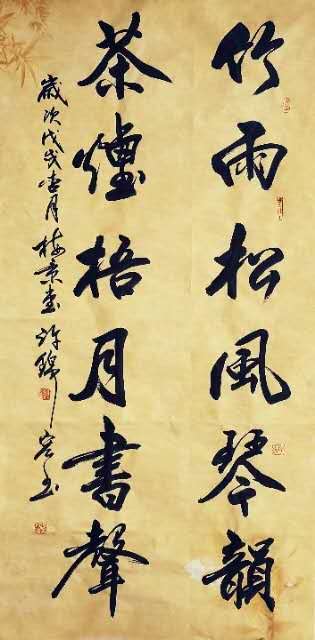 竹雨松風琴韻
茶煙梧月書聲
歲次戊戌杏月梅景書許錦